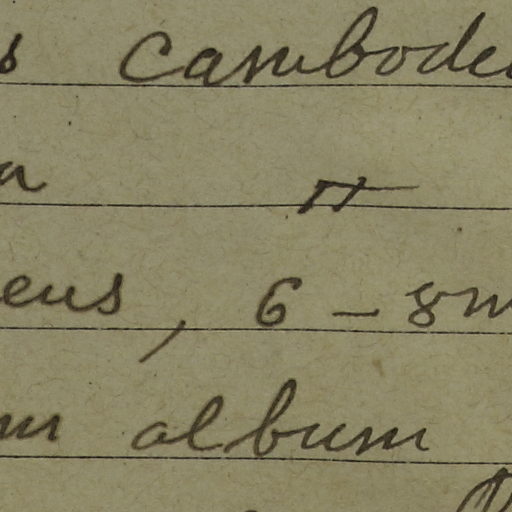 s Cambode
a "
eus, 6 - 8m
m album